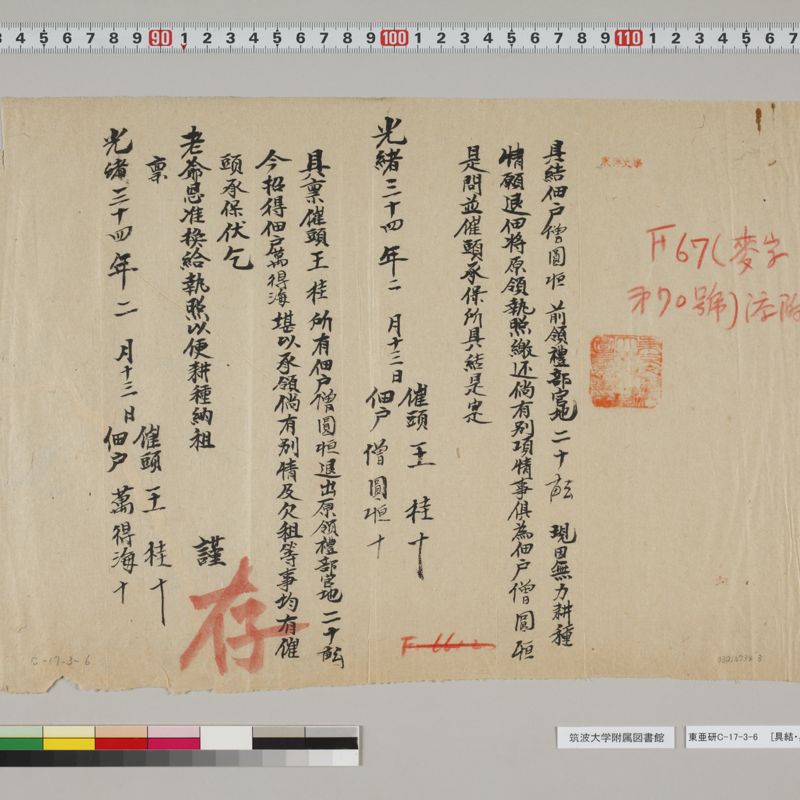 3 4 5 6 7 8 9 90 1 2 3 4 5 6 7 8 9 100 1 2 3 4 5 6 7 8 9 110 1 2 3 4 5 6 7
F67(麥字
第70號)添附
具結佃戶僧圓恒 前領禮部官地二十畝 現因無力耕種
情願退佃將原領執照繳还倘有别項情事俱為佃戶僧圓恒
是問並催頭承保所具結是実
光緒三十四年二月十三日
催頭 王桂十
佃戶 僧圓恒十
具稟催頭王桂所有佃戶僧圓恒退出原領禮部官地二十畝
今招得佃戶萬得海堪以承領倘有别情及欠租等事均有催
頭承保伏乞
老爺恩准換給執照以便耕種納租
謹
稟
光緒三十四年二月十三日
催頭 王桂十
佃戶 萬得海十
存
C-17-3-6
筑波大学附属図書館
東亜研C-17-3-6 [具結・